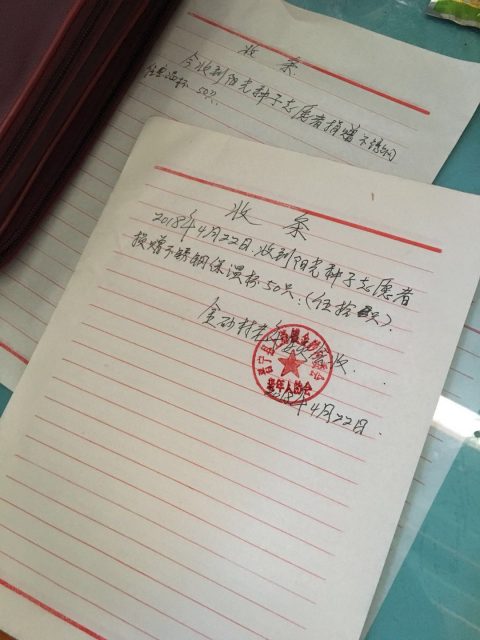 收条
今收到阳光种子志愿者捐赠不锈钢
保温杯50只
收条
2018年4月22日.收到阳光种子志愿者
捐赠不锈钢保温杯50只.(伍拾只).
金砂村老年协会签收.
2018年4月22日.
老年人协会